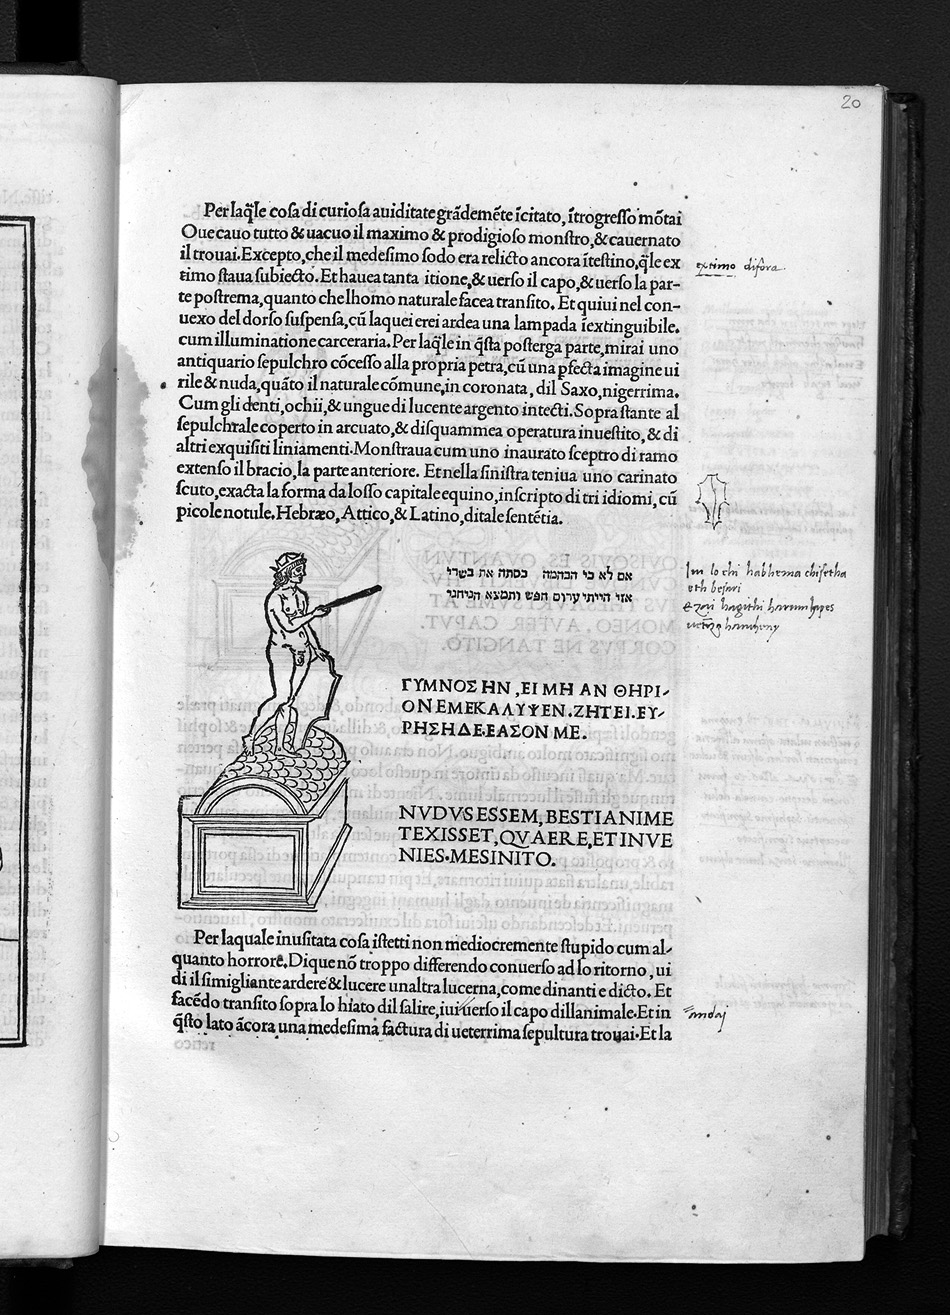 20
Per laq̃le cosa di curiosa auiditate grãdemẽte ĩcitato, ĩtrogresso mõtai
Oue cauo tutto & uacuo il maximo & prodigioso monstro, & cauernato
il trouai. Excepto, che il medesimo sodo era relicto ancora ĩtestino, q̃le ex
timo staua subiecto. Et hauea tanta itione, & uerso il capo, & uerso la par-
te postrema, quanto che lhomo naturale facea transito. Et quiui nel con-
uexo del dorso suspensa, cũ laquei erei ardea una lampada ĩextinguibile.
cum illuminatione carceraria. Per laq̃le in q̃sta posterga parte, mirai uno
antiquario sepulchro cõcesso alla propria petra, cũ una pfecta imagine ui
rile & nuda, quãto il naturale cõmune, in coronata, dil Saxo, nigerrima.
Cum gli denti, ochii, & ungue di lucente argento intecti. Sopra stante al
sepulchrale coperto in arcuato, & disquammea operatura inuestito, & di
altri exquisiti liniamenti. Monstraua cum uno inaurato sceptro di ramo
extenso il bracio, la parte anteriore. Et nella sinistra teniua uno carinato
scuto, exacta la forma da losso capitale equino, inscripto di tri idiomi, cũ
picole notule. Hebræo, Attico, & Latino, ditale sentẽtia.
extimo difora.
אם לא כי הבהמה כסתה את בשרי
אזי הייתי ערום חפש ותמצא הניחני
Im lo chi habhema chisetha
eth besari
ΓΥΜΝΟΣ ΗΝ, ΕΙ ΜΗ ΑΝ ΘΗΡΙ-
ΟΝ ΕΜΕΚΑΛΥΨΕΝ. ΖΗΤΕΙ. ΕΥ-
ΡΗΣΗ ΔΕ. ΕΑΣΟΝ ΜΕ.
NVDVS ESSEM, BESTIA NI ME
TEXISSET, QVAERE, ET INVE
NIES. ME SINITO.
Per laquale inusitata cosa istetti non mediocremente stupido cum al-
quanto horrore. Dique nõ troppo differendo conuerso ad lo ritorno, ui
di il simigliante ardere & lucere unaltra lucerna, come dinanti e dicto. Et
facẽdo transito sopra lo hiato dil salire, iui uerso il capo dillanimale. Et in
q̃sto lato ãcora una medesima factura di ueterrima sepultura trouai. Et la
andai